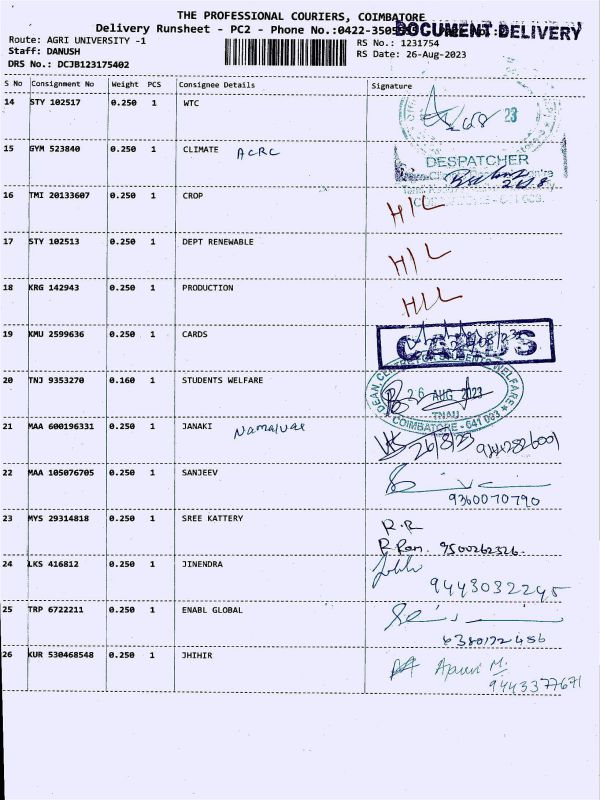 THE PROFESSIONAL COURIERS, COIMBATORE
Delivery Runsheet - PC2 - Phone No.:0422-3505
DOCUMENT DELIVERY
Route: AGRI UNIVERSITY -1
RS No.: 1231754
Staff: DANUSH
RS Date: 26-Aug-2023
DRS No.: DCJB123175402
S No Consignment No Weight PCS Consignee Details Signature
14 STY 102517 0.250 1 WTC
23
15 GYM 523840 0.250 1 CLIMATE ACRC
DESPATCHER
16 TMI 20133607 0.250 1 CROP H/L
17 STY 102513 0.250 1 DEPT RENEWABLE H/L
18 KRG 142943 0.250 1 PRODUCTION H/L
19 KMU 2599636 0.250 1 CARDS CARDS
20 TNJ 9353270 0.160 1 STUDENTS WELFARE
26 AUG 2023
TNAU
COIMBATORE - 641 003
21 MAA 600196331 0.250 1 JANAKI 26/8/23
22 MAA 105076705 0.250 1 SANJEEV
9360070790
23 MYS 29314818 0.250 1 SREE KATTERY R.R
R Ram. 9500262326
24 LKS 416812 0.250 1 JINENDRA
9443032245
25 TRP 6722211 0.250 1 ENABL GLOBAL
6380172456
26 KUR 530468548 0.250 1 JHIHIR
9443377671